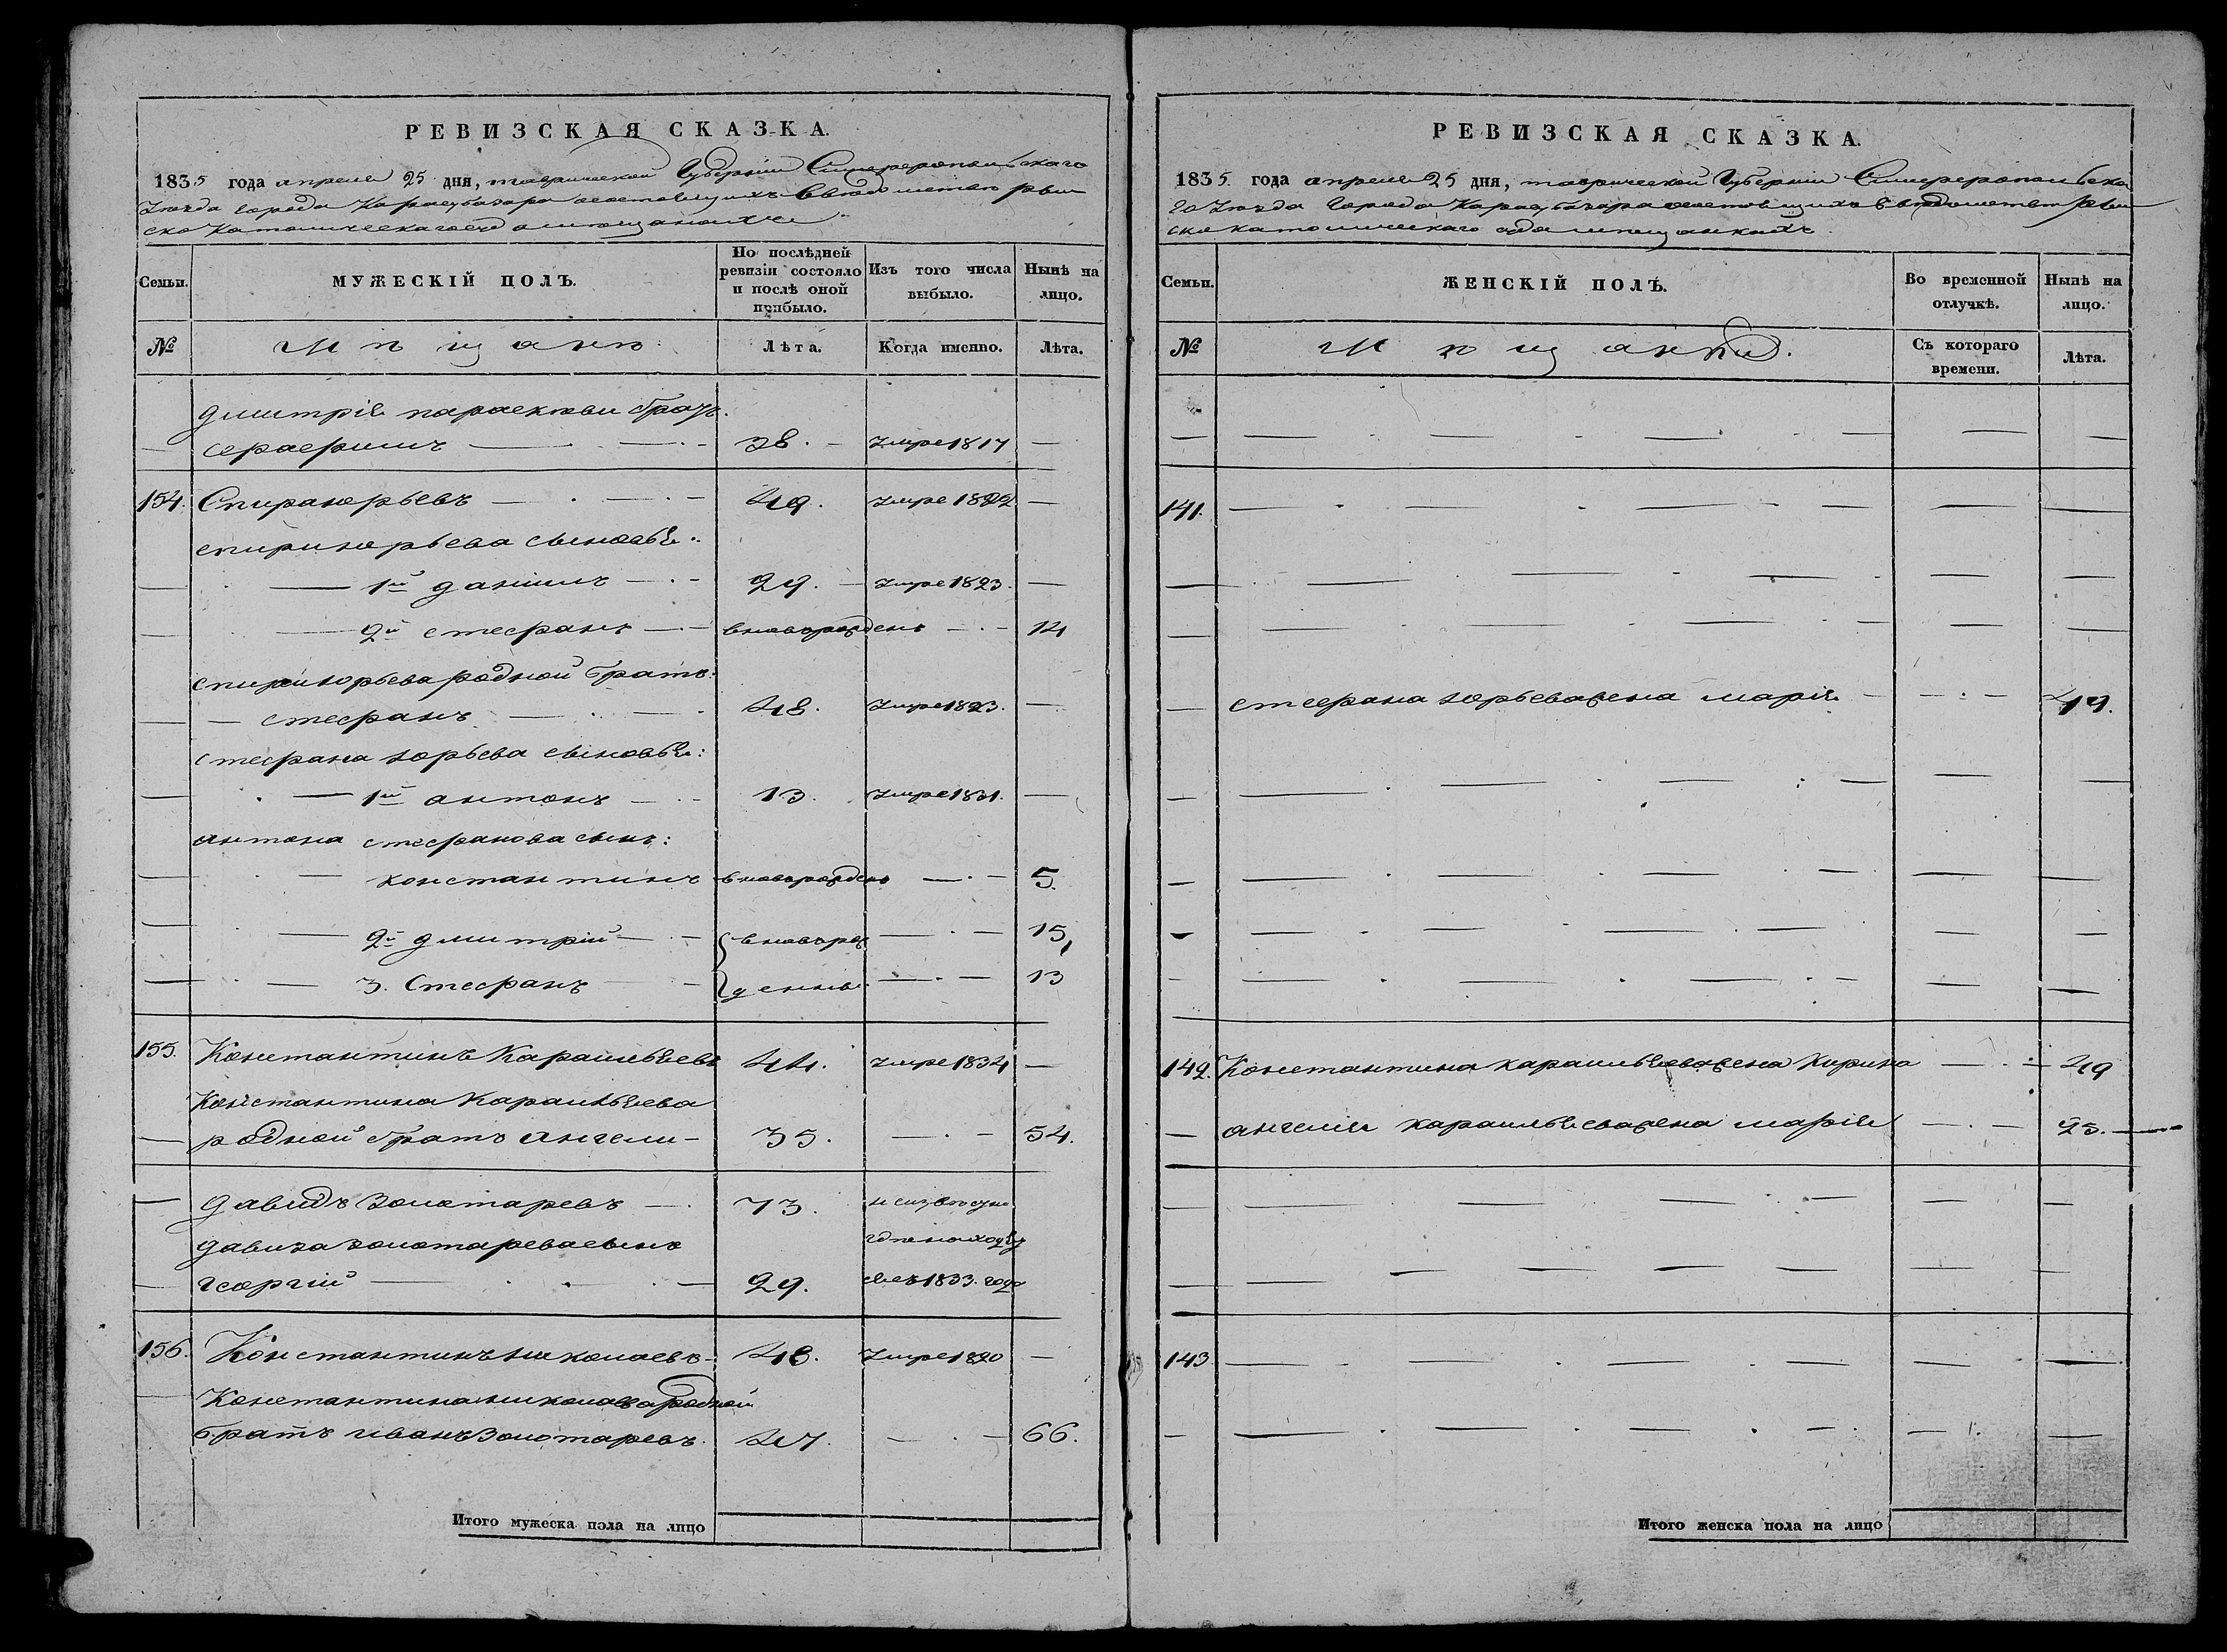 РЕВИЗСКАЯ СКАЗКА.
1835 года апреля 25 дня, таврической Губернии Симферопольскаго
Уезда города Карасубазара состоящихъ въ ведомстве рим
ско Католическаго суда о мещанахъ
Семьи. МУЖЕСКІЙ ПОЛЪ. По послѣдней ревизіи состояло и послѣ оной прибыло. Изъ того числа выбыло. Нынѣ на лицо.
№ Мѣщане Лѣта. Когда именно. Лѣта.
дмитрія параскови братъ
— серафимъ — 38. — умре 1817 —
154. Спира юрьевъ — 49. умре 1822 —
спири юрьева сыновья:
— 1й данилъ — 29. — умре 1823. —
— 2й стефанъ — вновьрожденъ — 14
спири юрьева родной братъ:
— стефанъ — 48. умре 1823. —
стефана юрьева сыновья:
— 1й антонъ — 13. умре 1831. —
антона стефанова сынъ:
— константинъ вновьрожденъ — 5.
— 2й дмитрій — вноворож — 15,
— 3. Стефанъ — денные — 13
155. Константинъ Карашьевъ 44. умре 1834 —
Константина Карашьева
— родной братъ Ангели — 35. — 54.
— давидъ Золотаревъ — 73. неизвестно
давида золотарева сынъ где находя
— георгий — 29. съ 1833. года
156. Константинъ николаевъ — 48. умре 1820 —
— Константина николаева родной
братъ иванъ Золотаревъ. 47. — 66.
Итого мужеска пола на лицо
РЕВИЗСКАЯ СКАЗКА.
1835. года апреля 25 дня, таврической Губернии Симферопольска
го Уезда Города Карасубазара состоящихъ въ ведомстве рим
ско католическаго суда мещанкахъ.
Семьи. ЖЕНСКІЙ ПОЛЪ. Во временной отлучкѣ. Нынѣ на лицо.
№ Мѣщанки. Съ котораго времени. Лѣта.
141.
— стефана юрьева жена марія — 47.
142. Константина карашьева жена Кирина — 49
— ангелія карашьева жена марія — 25.
143
Итого женска пола на лицо